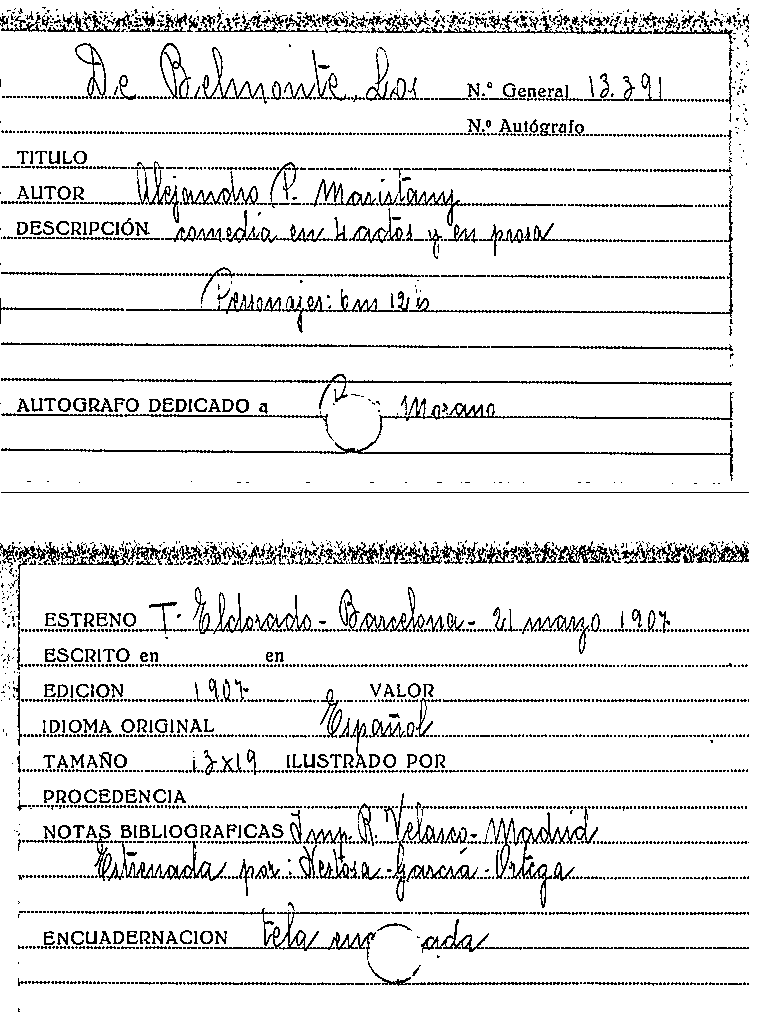 De Belmonte, Los N.º General 13.391
N.º Autógrafo
TITULO
AUTOR Alejandro P. Maristany
DESCRIPCIÓN comedia en 4 actos y en prosa
Personajes: 6 m 12 h
AUTOGRAFO DEDICADO a Morano
ESTRENO T. Eldorado - Barcelona - 21 marzo 1907
ESCRITO en en
EDICION 1907 VALOR
IDIOMA ORIGINAL Español
TAMAÑO 13x19 ILUSTRADO POR
PROCEDENCIA
NOTAS BIBLIOGRAFICAS Imp. R. Velasco - Madrid
Estrenada por: Nestosa - García - Ortega
ENCUADERNACION tela